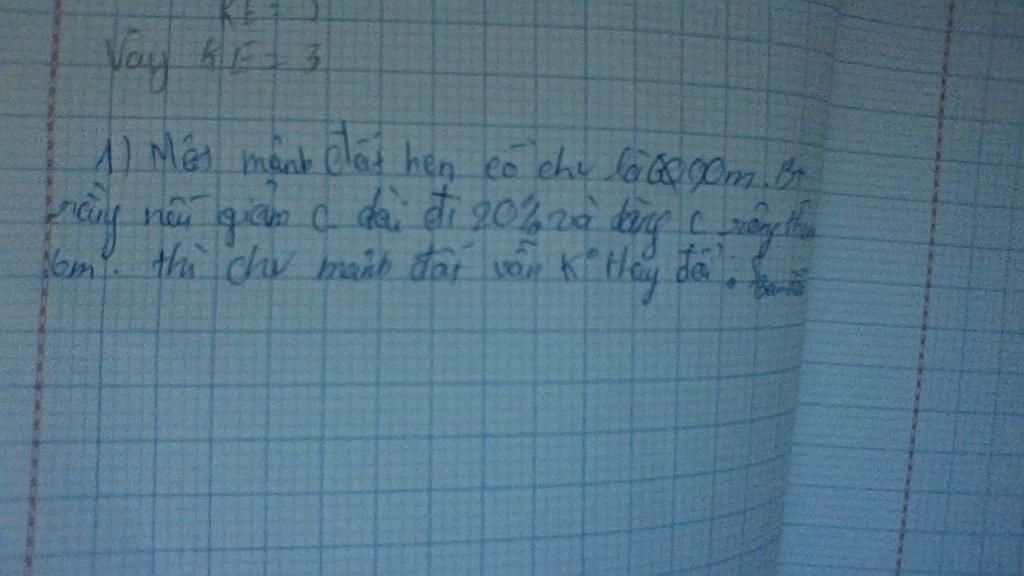 KE =
Vậy KE = 3
1) Một mảnh đất hcn có chv là m. Bt
rằng nếu giảm c dài đi 20% và tăng c rộng thêm
16m. thì chv mảnh đất vẫn K° thay đổi.